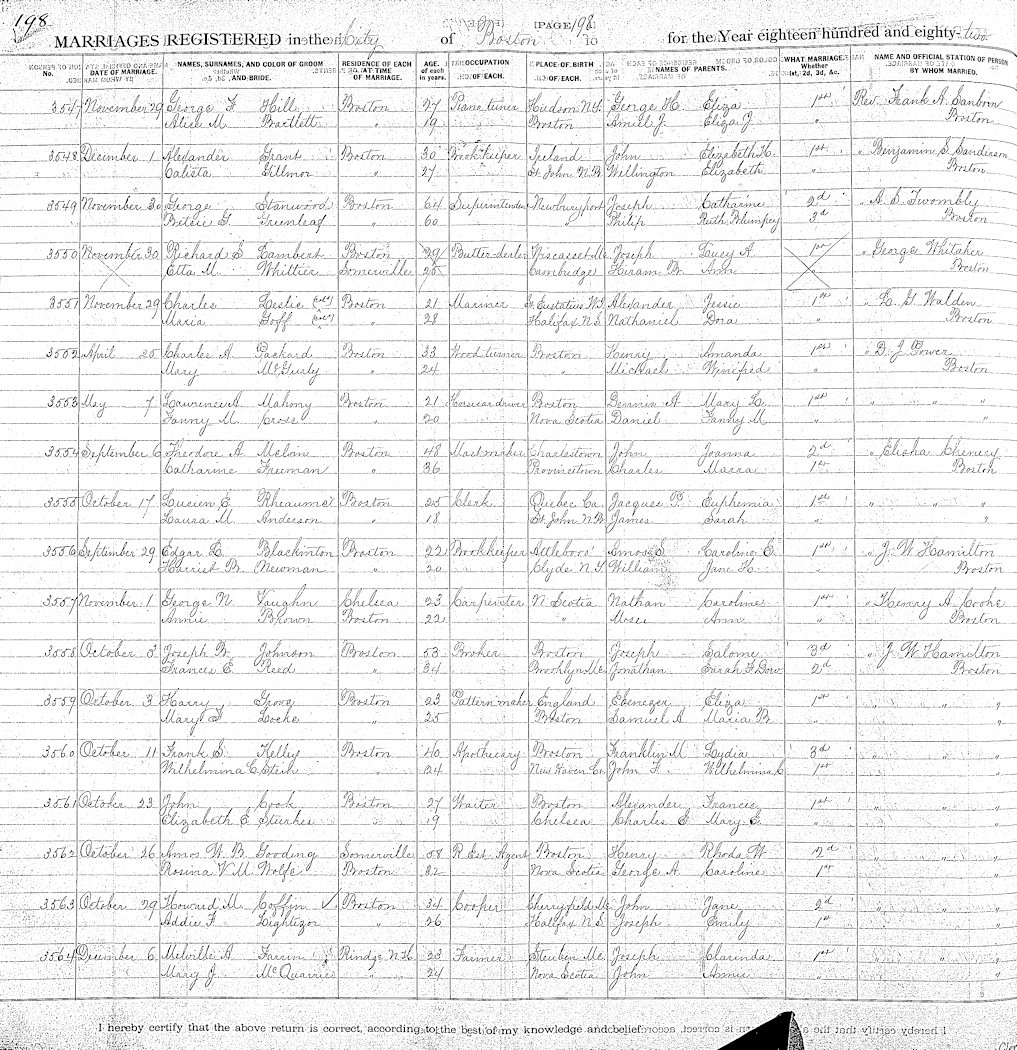 198
[PAGE 198
MARRIAGES REGISTERED in the City of Boston for the Year eighteen hundred and eighty-two
No. DATE OF MARRIAGE. NAMES, SURNAMES, AND COLOR OF GROOM AND BRIDE. RESIDENCE OF EACH AT TIME OF MARRIAGE. AGE. of each in years. OCCUPATION OF EACH. PLACE OF BIRTH OF EACH. NAMES OF PARENTS. WHAT MARRIAGE. Whether 1st, 2d, 3d, &c. NAME AND OFFICIAL STATION OF PERSON BY WHOM MARRIED.
3547 November 29 George F. Hill Boston 27 Piano tuner Hudson N.Y. George H. Eliza 1st Rev. Frank A. Sanborn
Alice M. Bartlett " 19 Boston Amiel J. Eliza J. " Boston
3548 December 1 Alexander Grant Boston 30 Bookkeeper Ireland John Elizabeth H. 1st " Benjamin S. Sanderson
Calista Fillmor " 27 St. John N.B. Wellington Elizabeth " Boston
3549 November 30 George Stanwood Boston 64 Superintendent Newburyport Joseph Catharine 2d " A. S. Twombly
Betsie G. Greenleaf " 60 " Philip Ruth Plumpey 3d Boston
3550 November 30 Richard S. Lambert Boston 29 Butter-dealer Wiscasset Me. Joseph Lucy A. 1st " George Whitaker
Etta M. Whittier Somerville 25 Cambridge Hiram B. Ann " Boston
3551 November 29 Charles Leslie (col'd) Boston 21 Mariner St. Eustatius W.I. Alexander Jessie 1st " L. G. Walden
Maria Goff (col'd) " 28 Halifax N.S. Nathaniel Dora " Boston
3552 April 25 Charles A. Packard Boston 33 Wood turner Boston Henry Amanda 1st " D. J. Power
Mary McGurly " 24 " Michael Winifred " Boston
3553 May 7 Lawrence A. Mahony Boston 21 Horsecar driver Boston Dennis A. Mary L. 1st " " "
Fanny M. Cross " 20 Nova Scotia Daniel Fanny M. " "
3554 September 6 Theodore A. Melvin Boston 48 Mastmaker Charlestown John Joanna 2d " Elisha Chenery
Catharine Freeman " 36 Provincetown Charles Marra 1st Boston
3555 October 17 Lucien E. Rheaume Boston 25 Clerk Quebec Ca. Jacques P. Euphemia 1st " " "
Laura M. Anderson " 18 St. John N.B. James Sarah " "
3556 September 29 Edgar L. Blackinton Boston 22 Bookkeeper Attleboro' Amos S. Caroline E. 1st " J. W. Hamilton
Harriet B. Newman " 20 Clyde N.Y. William Jane H. " Boston
3557 November 1 George N. Vaughn Chelsea 23 Carpenter N. Scotia Nathan Caroline 1st " Henry A. Cooke
Annie Brown Boston 22 " Moses Ann " Boston
3558 October 3 Joseph B. Johnson Boston 53 Broker Boston Joseph Salome 3d " J. W. Hamilton
Frances E. Reed " 34 Brooklyn Me. Jonathan Sarah F. Dow 2d Boston
3559 October 3 Harry Grove Boston 23 Pattern maker England Ebenezer Eliza 1st " " "
Mary Locke " 25 Boston Samuel A. Maria B. " "
3560 October 11 Frank S. Kelley Boston 40 Apothecary Boston Franklin M. Lydia 3d " " "
Wilhelmina C. Stich " 24 New Haven Ct. John F. Wilhelmina C. 1st "
3561 October 23 John Cook Boston 27 Waiter Boston Alexander Francis 1st " " "
Elizabeth E. Sturkes " 19 Chelsea Charles G. Mary E. " "
3562 October 26 Amos W. B. Gooding Somerville 58 R. Est. Agent Boston Henry Rhoda W. 2d " " "
Rosina V. M. Wolfe Boston 32 Nova Scotia George A. Caroline 1st "
3563 October 29 Howard M. Coffin ✓ Boston 34 Cooper Cherryfield Me. John Jane 2d " " "
Addie F. Lightizor " 26 Halifax N.S. Joseph Emily 1st "
3564 December 6 Melville A. Farrin Rindge N.H. 23 Farmer Steuben Me. Joseph Clarinda 1st " " "
Mary J. McQuarrie " 24 Nova Scotia John Annie " "
I hereby certify that the above return is correct, according to the best of my knowledge and belief.